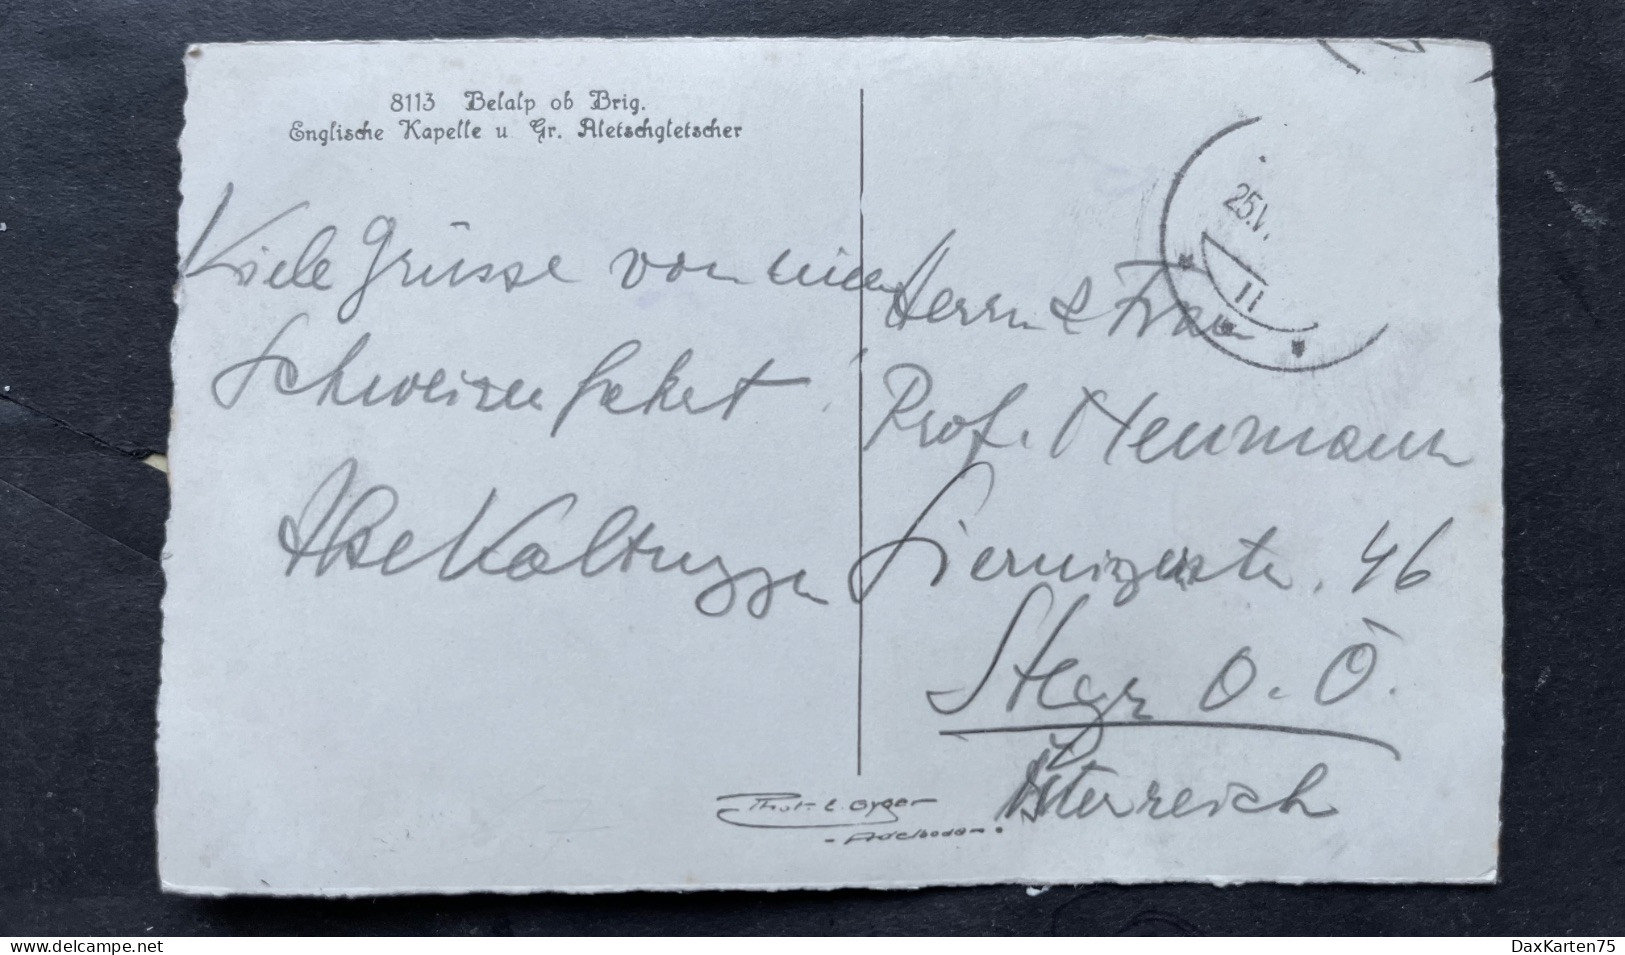 8113 Belalp ob Brig.
Englische Kapelle u Gr. Aletschgletscher
Viele Grüsse von einer
Schweizerfahrt!
Ilse Kaltenegger
Herrn & Frau
Prof. Neumann
Sierningerstr. 46
Steyr O. Ö.
Österreich
25.V
11
Phot. E. Gyger
- Adelboden.
www.delcampe.net
DaxKarten75